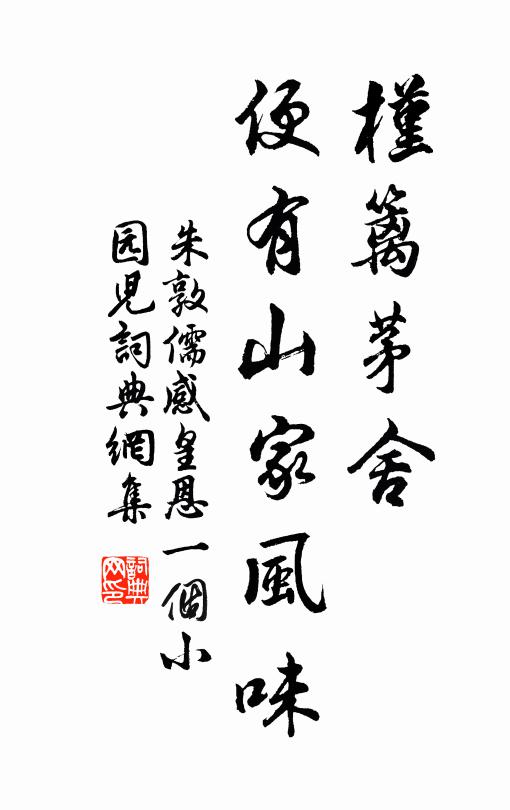 槿篱茅舍
便有山家風味
朱敦儒感皇恩一個小
园児詞典網集
詞典网印